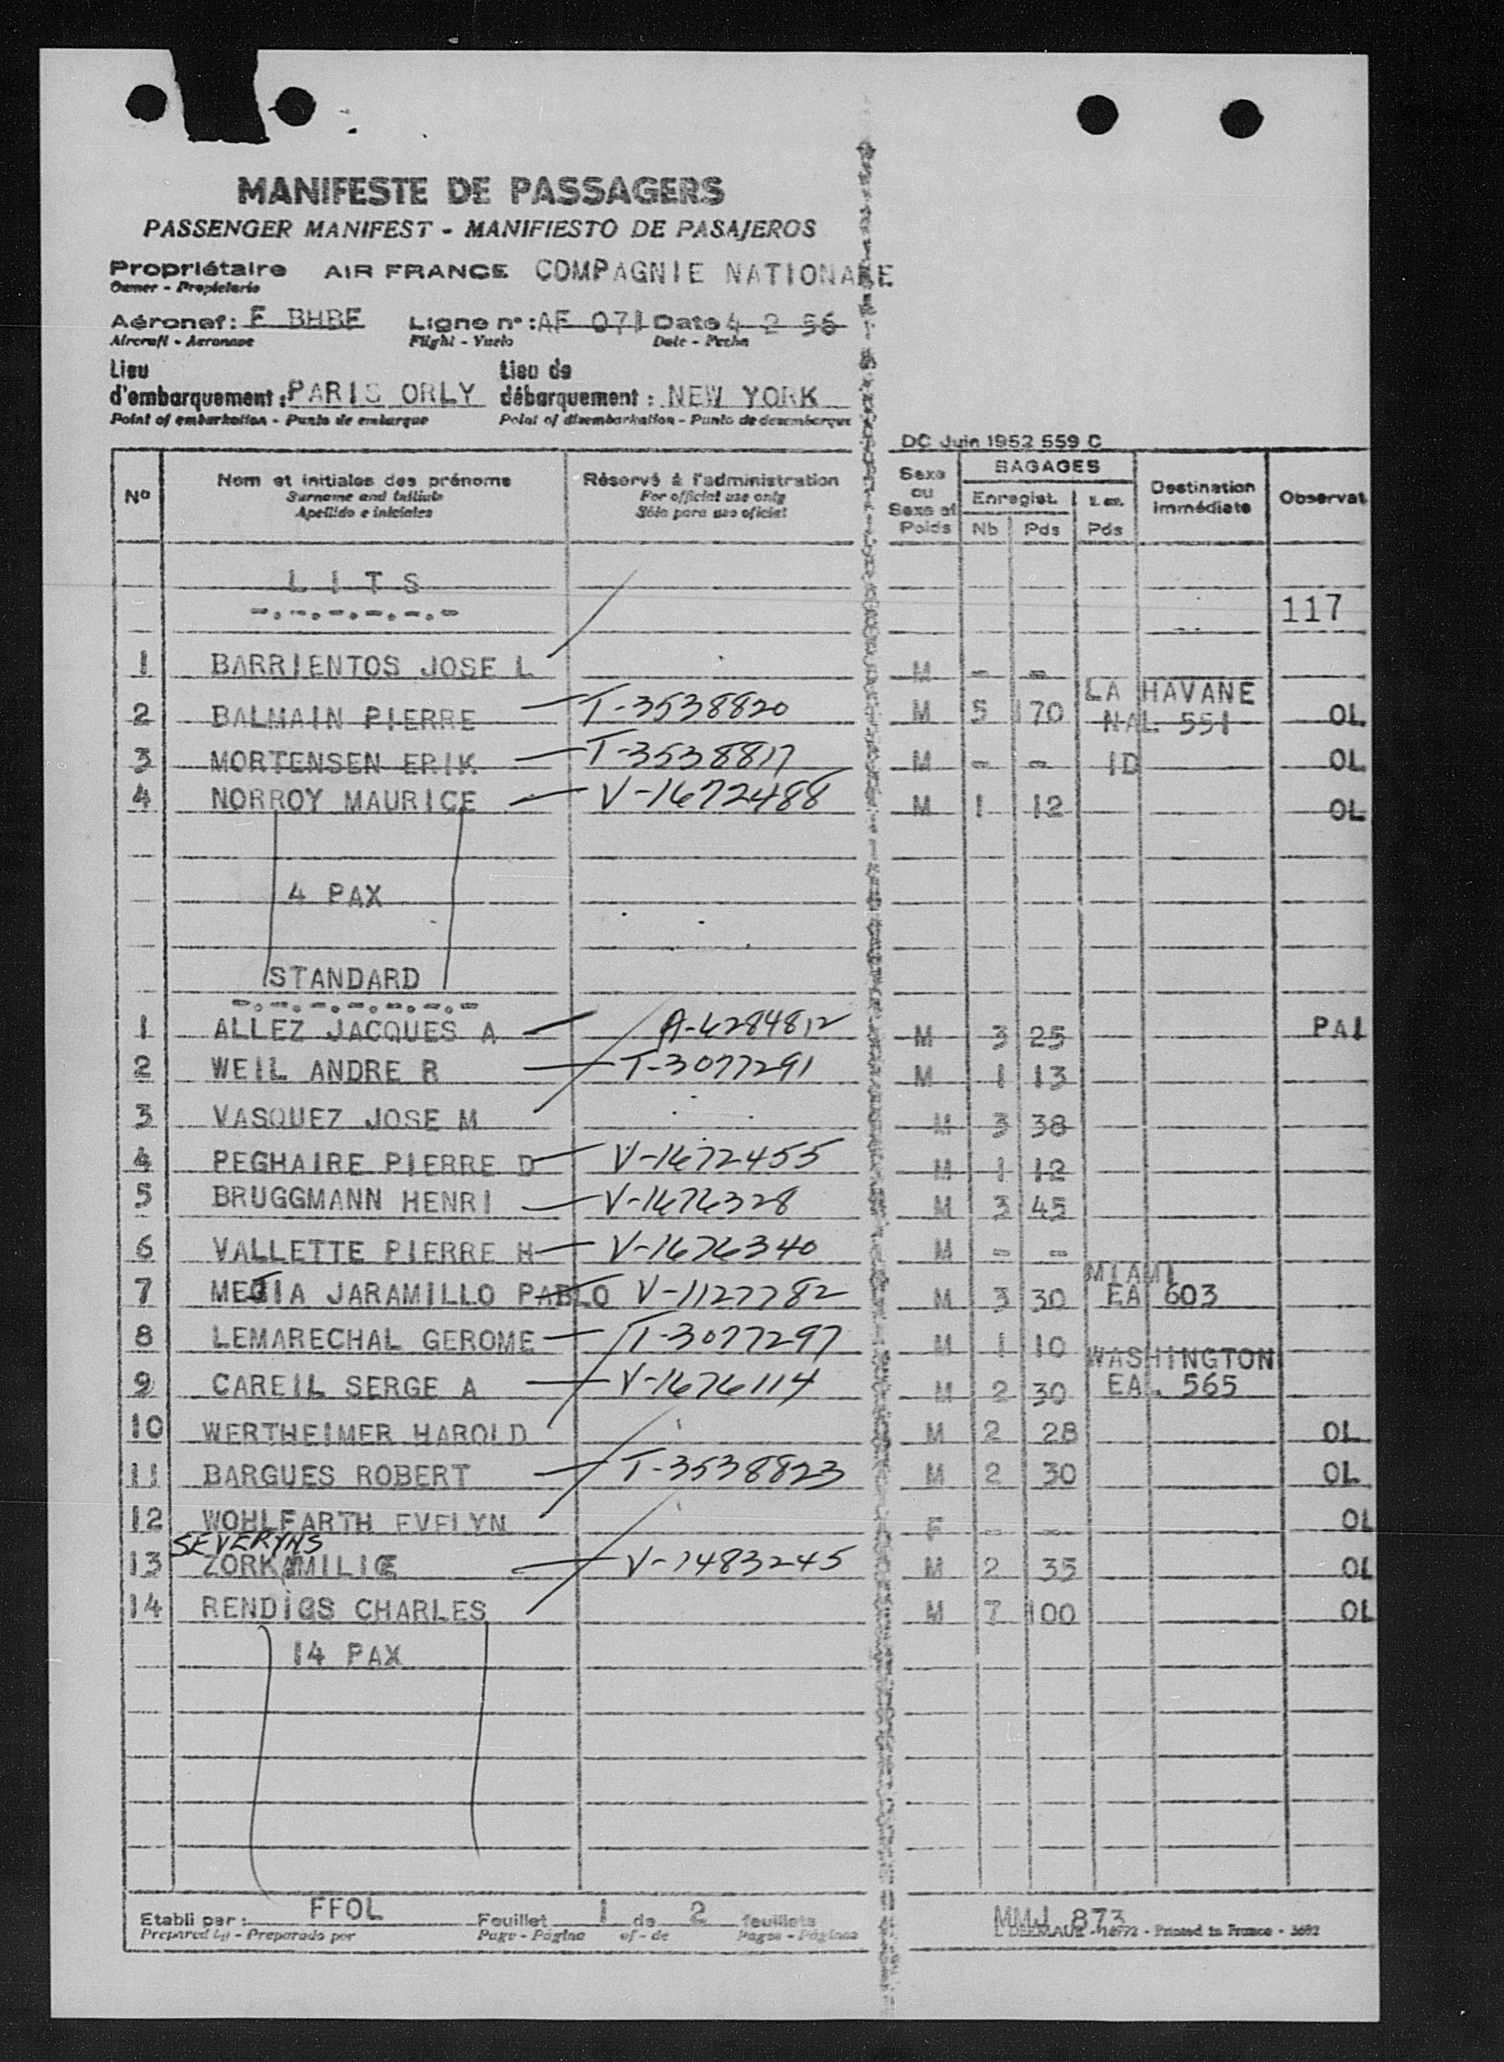 MANIFESTE DE PASSAGERS
PASSENGER MANIFEST - MANIFIESTO DE PASAJEROS
Propriétaire AIR FRANCE COMPAGNIE NATIONALE
Owner - Propietario
Aéronef: F BHBF Ligne n°: AF 071 Date 4 2 56
Aircraft - Aeronave Flight - Vuelo Date - Fecha
Lieu Lieu de
d'embarquement: PARIS ORLY débarquement: NEW YORK
Point of embarkation - Punto de embarque Point of disembarkation - Punto de desembarque
DC Juin 1952 559 C
Nº Nom et initiales des prénoms Réservé à l'administration Sexe ou Sexe et Poids BAGAGES Destination immédiate Observat
Surname and initials For official use only Enregist.
Apellido e iniciales Sólo para uso oficial Nb Pds Pds
LITS
-.-.-.-.-.-
117
1 BARRIENTOS JOSE L M - -
LA HAVANE
2 BALMAIN PIERRE T-3538820 M 5 170 NAL 551 OL
3 MORTENSEN ERIK T-3538817 M - - ID OL
4 NORROY MAURICE V-1672488 M 1 12 OL
4 PAX
STANDARD
-.-.-.-.-.-.-
1 ALLEZ JACQUES A A-6284812 M 3 25 PAI
2 WEIL ANDRE R T-3077291 M 1 13
3 VASQUEZ JOSE M M 3 38
4 PEGHAIRE PIERRE D V-1672455 M 1 12
5 BRUGGMANN HENRI V-1676328 M 3 45
6 VALLETTE PIERRE H V-1676340 M - -
MIAMI
7 MEJIA JARAMILLO PABLO V-1127782 M 3 30 EA 603
8 LEMARECHAL GEROME T-3077297 M 1 10
WASHINGTON
9 CAREIL SERGE A V-1676114 M 2 30 EA. 565
10 WERTHEIMER HAROLD M 2 28 OL
11 BARGUES ROBERT T-3538823 M 2 30 OL
12 WOHLFARTH EVELYN F - - OL
SEVERYNS
13 ZORKA MILICE V-1483245 M 2 35 OL
14 RENDIGS CHARLES M 7 100 OL
14 PAX
Etabli par: FFOL Feuillet 1 de 2 feuillets MMJ 873
Prepared by - Preparado por Page - Página of - de Pages - Páginas Printed in France - 3692